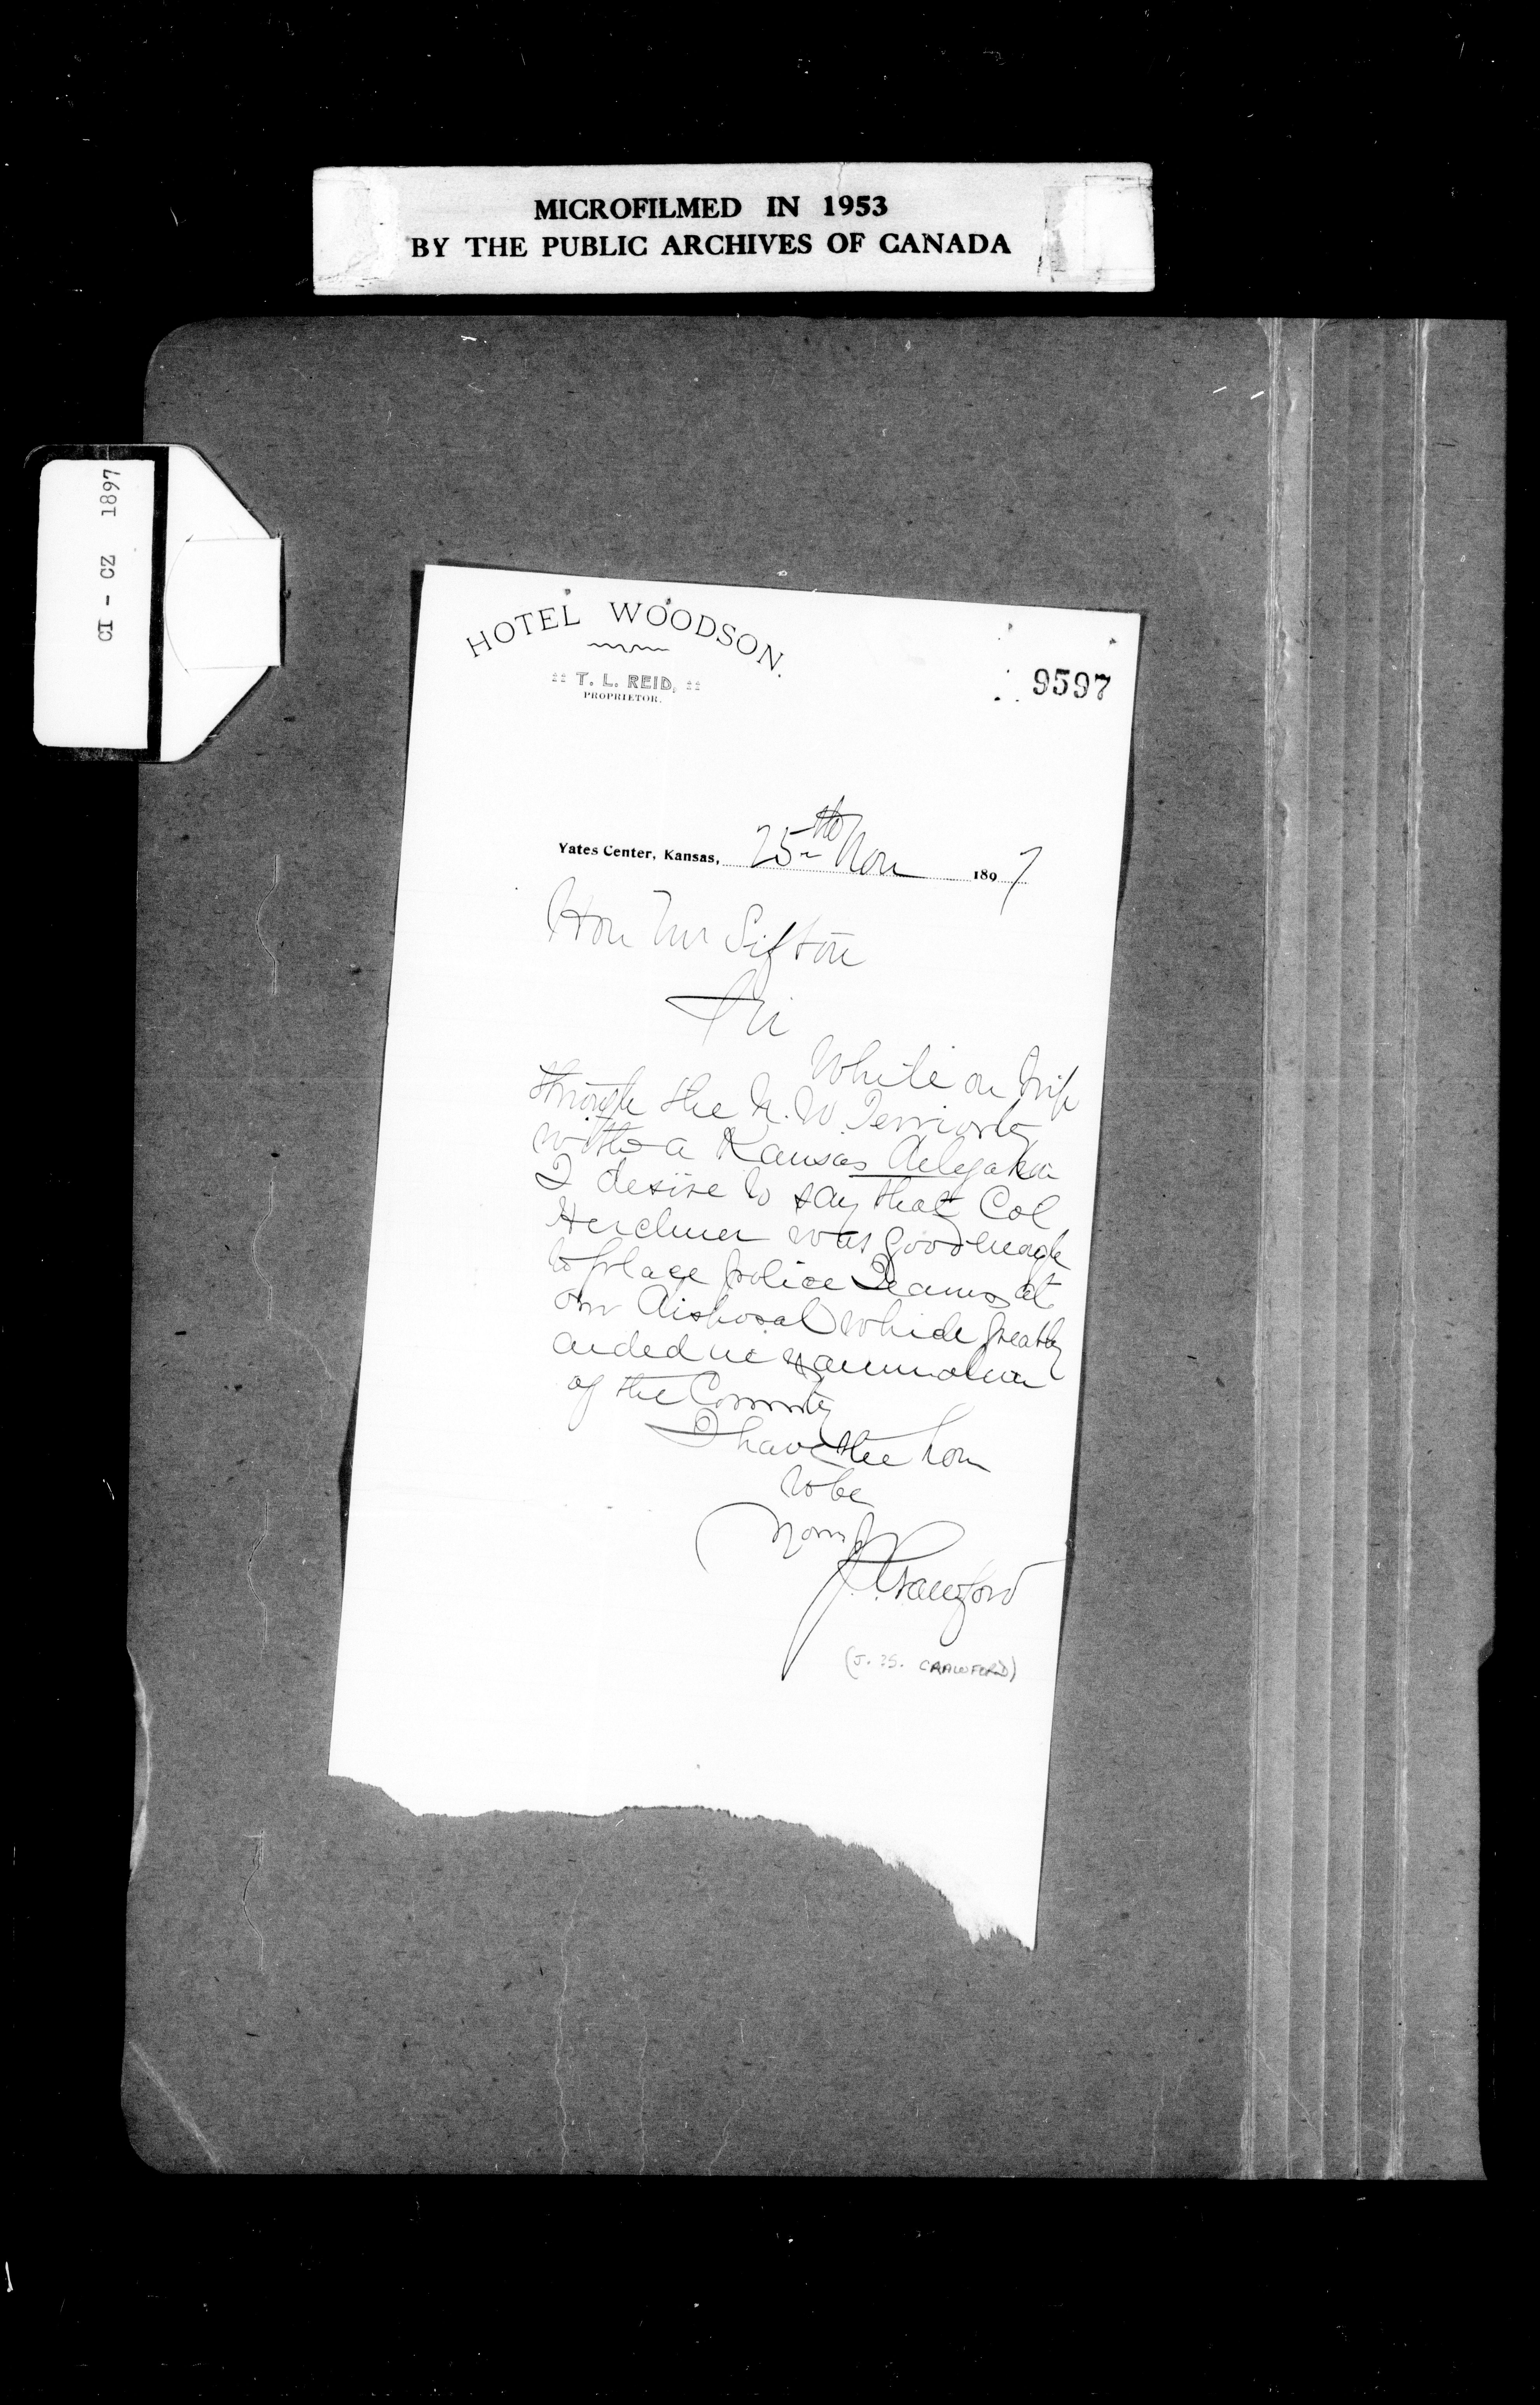 MICROFILMED IN 1953
BY THE PUBLIC ARCHIVES OF CANADA
CI - CZ 1897
HOTEL WOODSON.
:: T. L. REID, ::
PROPRIETOR.
9597
Yates Center, Kansas, 25th Nov 1897
Hon Mr Sifton
Sir
While on trip
through the N. W. Territory
with a Kansas delegation
I desire to say that Col
Herchmer was good enough
to place police Teams at
our disposal which greatly
aided in examination
of the Country
I have the hon
to be
Yours
J. Crawford
(J. ?S. CRAWFORD)